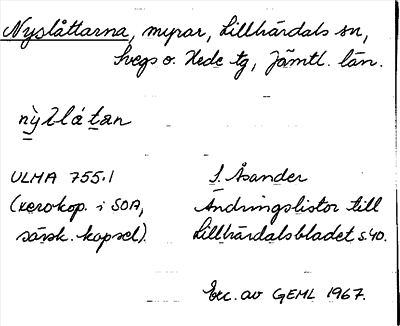 Nyslåttarna, myrar, Lillhärdals sn,
Svegs o. Hede tg, Jämtl. län.
nỳslåtan
ULMA 755:1
(xerokop. i SOA,
särsk. kapsel).
S. Åsander
Ändringslistor till
Lillhärdalsbladet s. 40.
Exc. av GEML 1967.